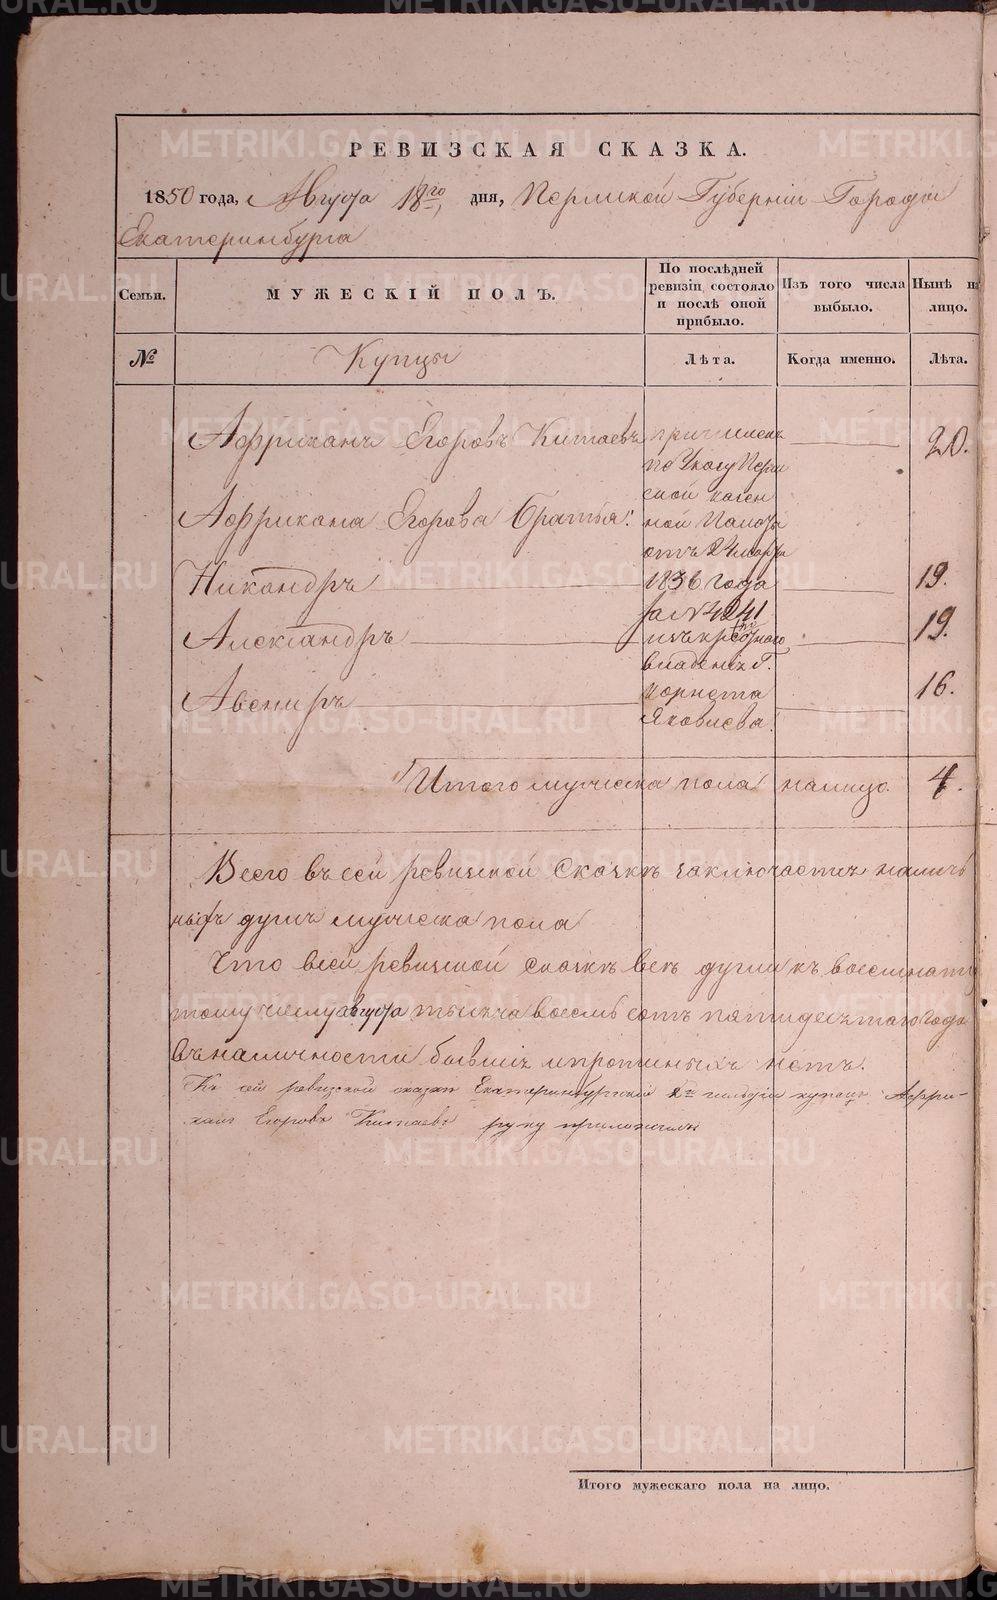 РЕВИЗСКАЯ СКАЗКА.
1850 года, Августа 18го дня, Пермской Губерніи Города
Екатеринбурга
Семьи. МУЖЕСКІЙ ПОЛЪ. По послѣдней ревизіи состояло и послѣ оной прибыло. Изъ того числа выбыло. Нынѣ на лицо.
№ Купцы Лѣта. Когда именно. Лѣта.
Африканъ Егоровъ Китаевъ причисленъ 20.
по Указу Перм
ской казен
Африкана Егорова братья: ной Палаты
отъ 24 марта
Никандръ 1836 года 19.
за № 4241
Александръ изъ крѣпостного 19.
владенія Г.
Авениръ корнета 16.
Яковлева.
Итого мужеска пола налицо. 4.
Всего въ сей ревизской сказкѣ заключается налич
ныхъ душъ мужеска пола
Что всей ревизской сказкѣ всѣ души къ восемнатца
тому числу августа тысяча восемь сотъ пятидесятаго года
въ наличности бывшіе и прописныхъ нетъ.
Къ сей ревизской сказкѣ Екатеринбургскій 2й гильдіи купецъ Афри-
канъ Егоровъ Китаевъ руку приложилъ
Итого мужескаго пола на лицо.
METRIKI.GASO-URAL.RU